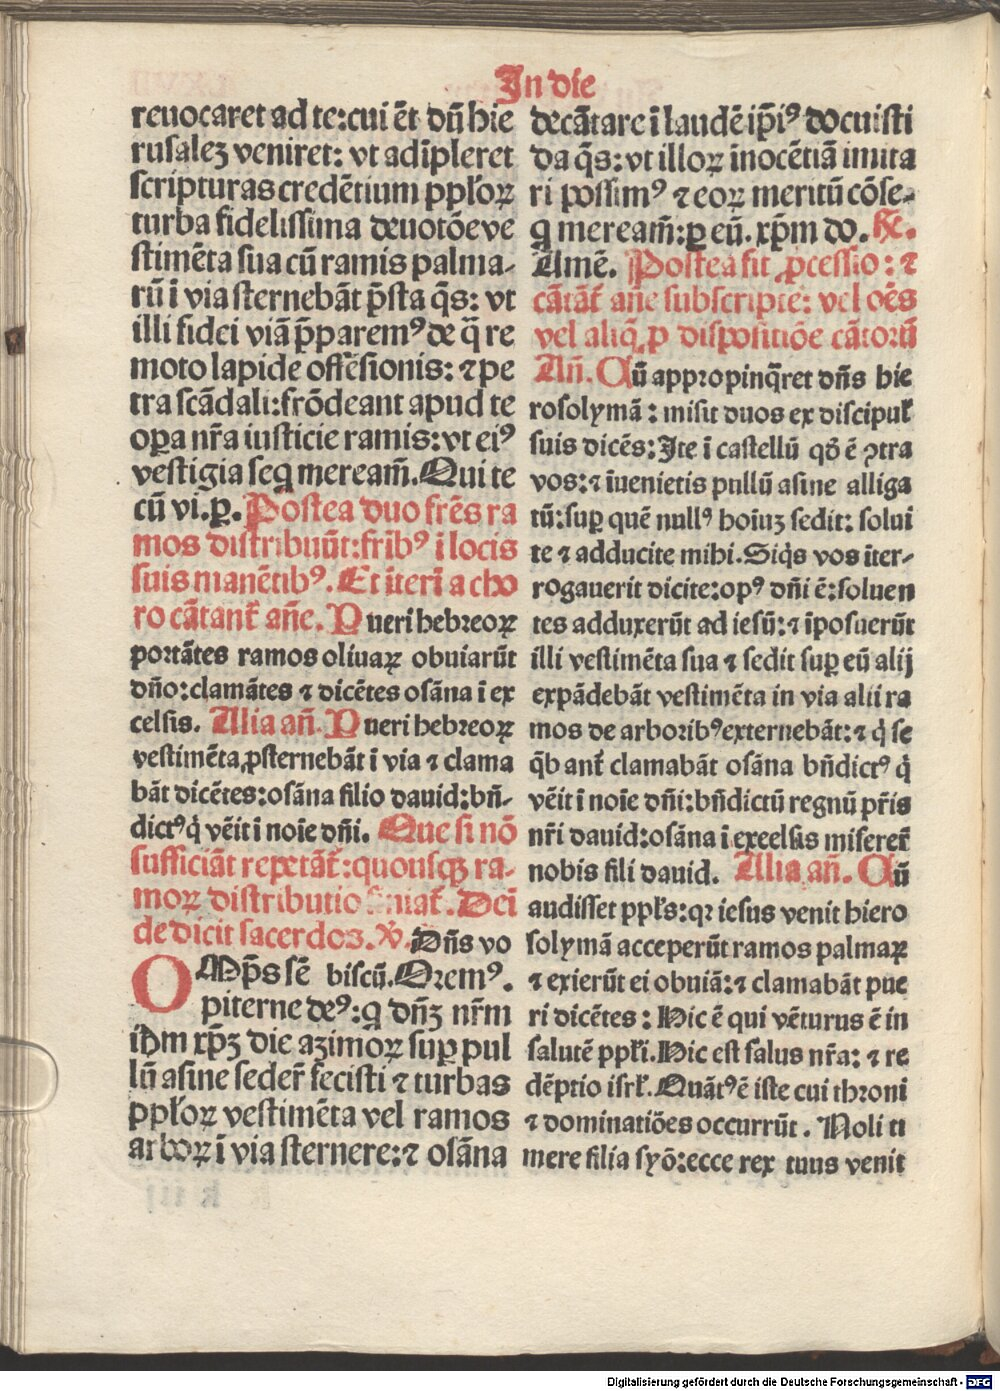 In die
reuocaret ad te:cui ēt dn̄ hie
rusaleꝫ veniret: vt adīpleret
scripturas credētium ppłoꝝ
turba fidelissima deuotōe ve
stimēta sua cū ramis palma-
rū ī via sternebāt p̄sta q̄s: vt
illi fidei viā p̄parem⁹ de q̄ re
moto lapide offēsionis: ⁊ pe
tra scādali:frōdeant apud te
oꝑa nr̄a iusticie ramis:vt ei⁹
vestigia seq̄ meream̄.Qui te
cū vi.ꝑ. Postea duo fres̄ ra
mos distribuūt:frīb⁹ ī locis
suis manētib⁹. Et īterī a cho
ro cātant̄ añe. Pueri hebreoꝝ
portātes ramos oliuaꝝ obuiarūt
dño:clamātes ⁊ dicētes osāna ī ex
celsis. Alia añ. Pueri hebreoꝝ
vestimēta ꝓsternebāt ī via ⁊ clama
bāt dicētes:osāna filio dauid:bn̄-
dict⁹ q̇ vēit ī noīe dn̄i. Que si nō
sufficiāt repetāt̄:quousqꝫ ra-
moꝝ distributio finiat̄. Deī
de dicit sacerdos. ℣. Dn̄s vo
OMp̄s sē biscū.Orem⁹.
piterne de⁹:q dn̄ꝫ nr̄m
ih̄m xp̄ꝫ die azimoꝝ suꝑ pul
lū asine seder̄ fecisti ⁊ turbas
ppłoꝝ vestimēta vel ramos
arboꝝ ī via sternere:⁊ osāna
decātare ī laudē ip̄i⁹ docuisti
da q̄s: vt illoꝝ īnocētiā imita
ri possim⁹ ⁊ eoꝝ meritū cōse-
q̄ meream̄:ꝑ eū. xp̄m do. ℟.
Amē. Postea fit ꝓcessio: ⁊
cātāt̄ añe subscripte: vel oēs
vel aliq̄ ꝑ dispositiōe cātorū
Añ. Cū appropinq̄ret dn̄s hie
rosolymā: misit duos ex discipuł
suis dicēs:Ite ī castellū qđ ē ꝯtra
vos:⁊ īuenietis pullū asine alliga
tū:suꝑ quē null⁹ hoīuꝫ sedit: solui
te ⁊ adducite mihi.Siq̇s vos īter-
rogauerit dicite:op⁹ dn̄i ē:soluen
tes adduxerūt ad iesū:⁊ īposuerūt
illi vestimēta sua ⁊ sedit suꝑ eū alij
expādebāt vestimēta in via alii ra
mos de arborib⁹ externebāt:⁊ q̇ se
q̄b ant̄ clamabāt osāna bn̄dict⁹ q̇
vēit ī noīe dn̄i:bn̄dictū regnū pr̄is
nr̄i dauid:osāna ī exeelsis miseret̄
nobis fili dauid. Alia añ. Cū
audisset ppłs:qꝛ iesus venit hiero
solymā acceperūt ramos palmaꝝ
⁊ exierūt ei obuiā:⁊ clamabāt pue
ri dicētes: Hic ē qui vēturus ē in
salutē ppłi.Hic est salus nr̄a: ⁊ re
dēptio isrł.Quāt⁹ ē iste cui throni
⁊ dominatiōes occurrūt. Noli ti
mere filia syō:ecce rex tuus venit
Digitalisierung gefördert durch die Deutsche Forschungsgemeinschaft - DFG